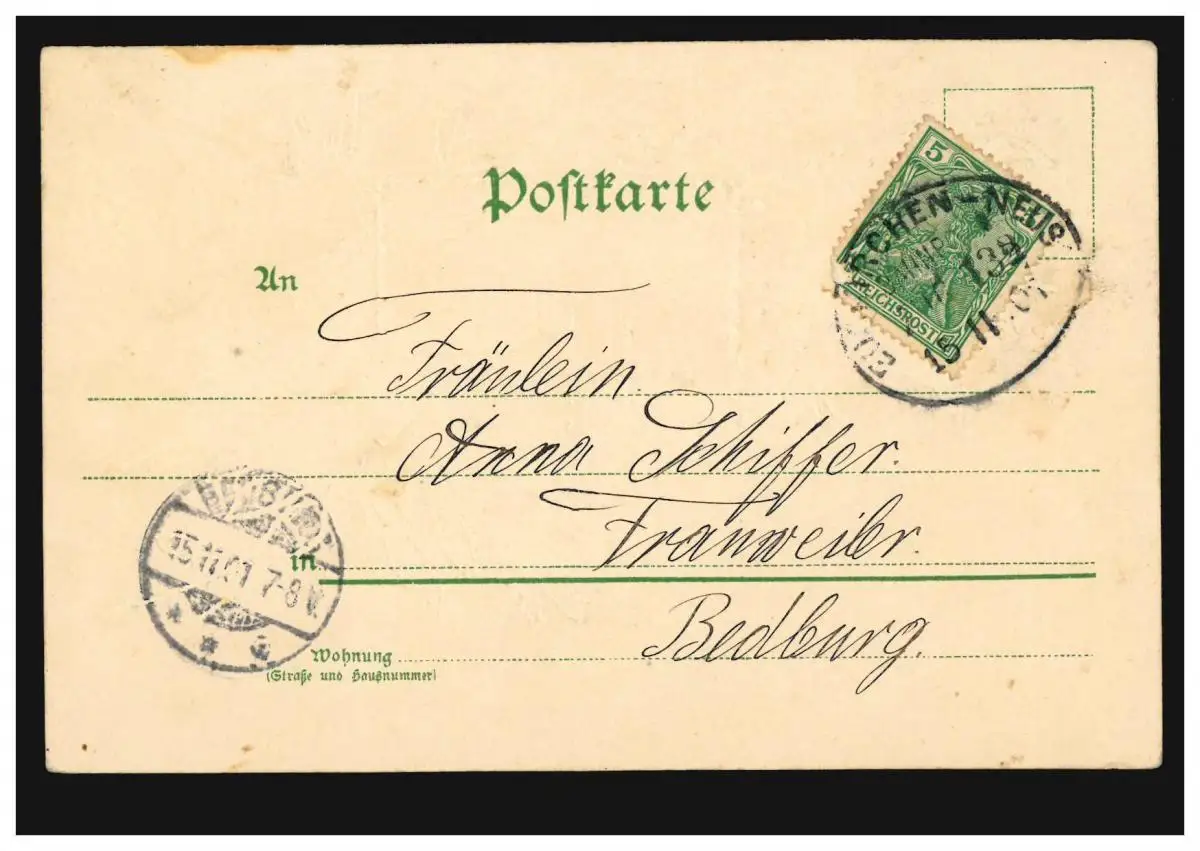 Postkarte
5
REICHSPOST
RCHEN-NEUS
138
15 11 01
An
Fräulein
Anna Schiffer.
in Frauweiler.
Bedburg.
15.11.01 7-8 V.
Wohnung
(Straße und Hausnummer)